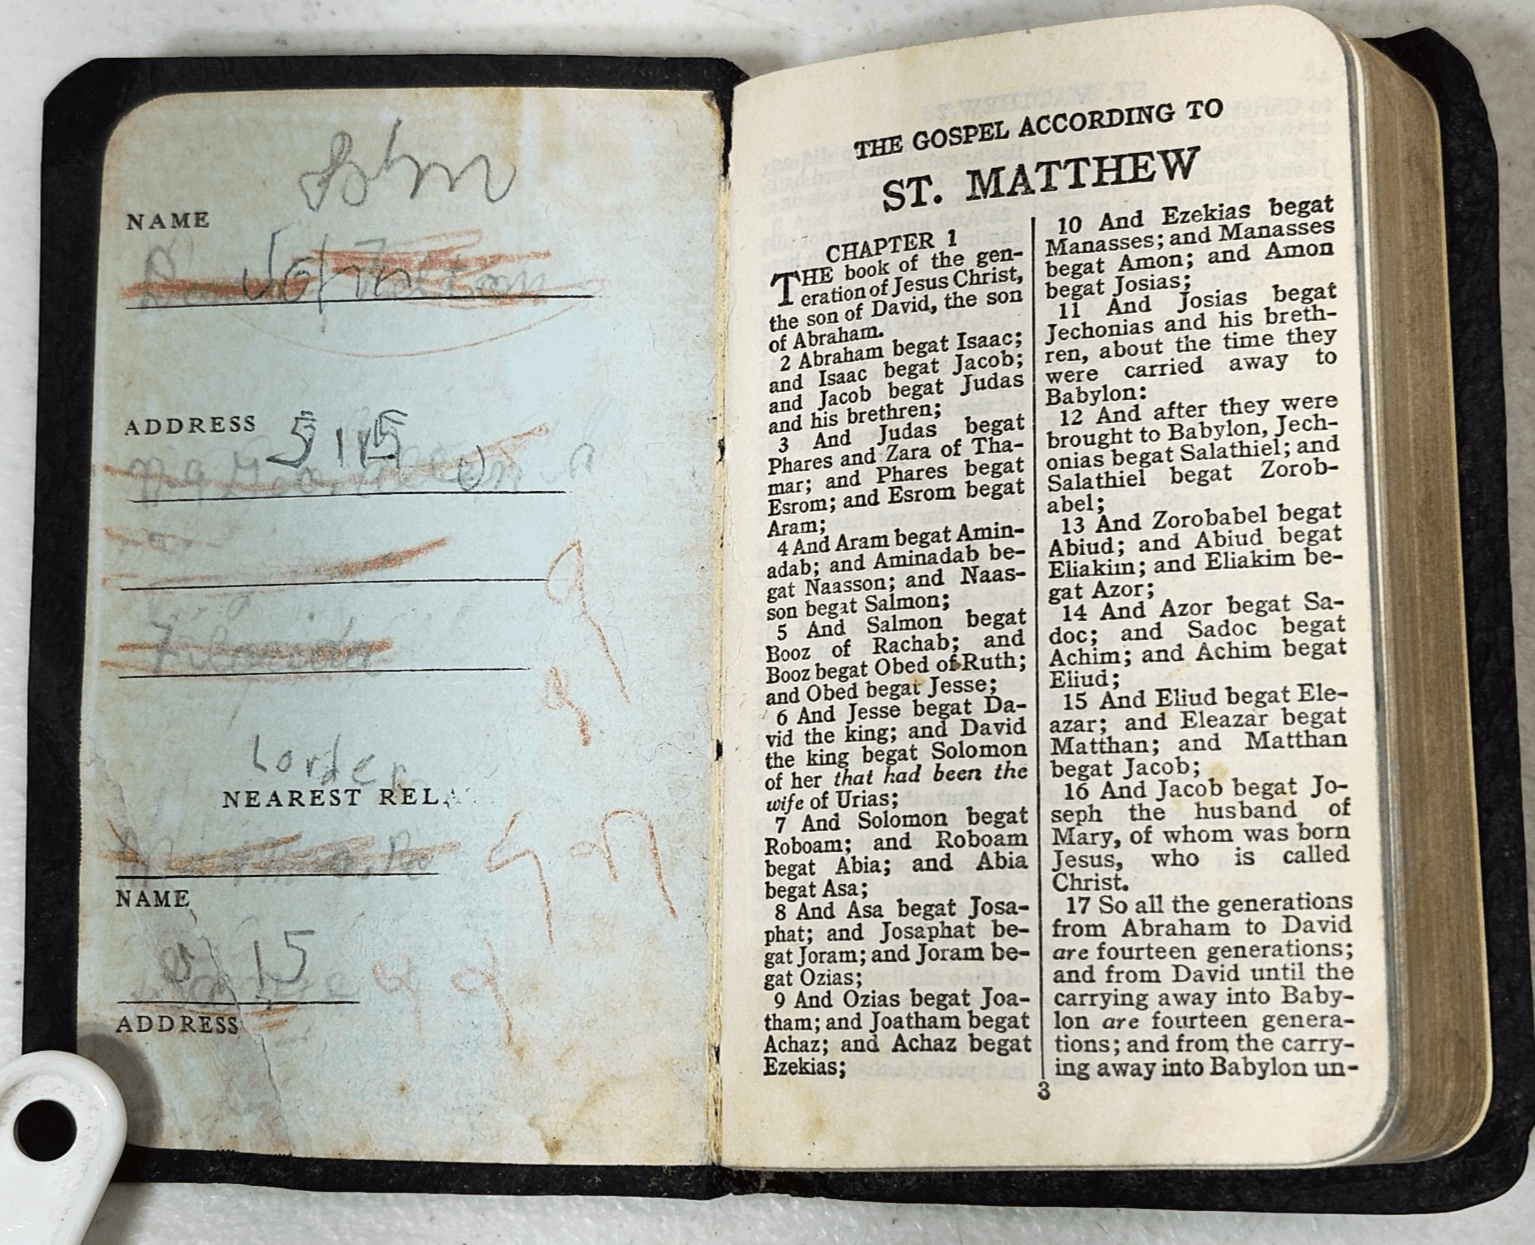 John
NAME
John
ADDRESS
5115
Lorder
NEAREST REL
NAME
15
ADDRESS
THE GOSPEL ACCORDING TO
ST. MATTHEW
CHAPTER 1
THE book of the gen-
eration of Jesus Christ,
the son of David, the son
of Abraham.
2 Abraham begat Isaac;
and Isaac begat Jacob;
and Jacob begat Judas
and his brethren;
3 And Judas begat
Phares and Zara of Tha-
mar; and Phares begat
Esrom; and Esrom begat
Aram;
4 And Aram begat Amin-
adab; and Aminadab be-
gat Naasson; and Naas-
son begat Salmon;
5 And Salmon begat
Booz of Rachab; and
Booz begat Obed of Ruth;
and Obed begat Jesse;
6 And Jesse begat Da-
vid the king; and David
the king begat Solomon
of her that had been the
wife of Urias;
7 And Solomon begat
Roboam; and Roboam
begat Abia; and Abia
begat Asa;
8 And Asa begat Josa-
phat; and Josaphat be-
gat Joram; and Joram be-
gat Ozias;
9 And Ozias begat Joa-
tham; and Joatham begat
Achaz; and Achaz begat
Ezekias;
10 And Ezekias begat
Manasses; and Manasses
begat Amon; and Amon
begat Josias;
11 And Josias begat
Jechonias and his breth-
ren, about the time they
were carried away to
Babylon:
12 And after they were
brought to Babylon, Jech-
onias begat Salathiel; and
Salathiel begat Zorob-
abel;
13 And Zorobabel begat
Abiud; and Abiud begat
Eliakim; and Eliakim be-
gat Azor;
14 And Azor begat Sa-
doc; and Sadoc begat
Achim; and Achim begat
Eliud;
15 And Eliud begat Ele-
azar; and Eleazar begat
Matthan; and Matthan
begat Jacob;
16 And Jacob begat Jo-
seph the husband of
Mary, of whom was born
Jesus, who is called
Christ.
17 So all the generations
from Abraham to David
are fourteen generations;
and from David until the
carrying away into Baby-
lon are fourteen genera-
tions; and from the carry-
ing away into Babylon un-
3